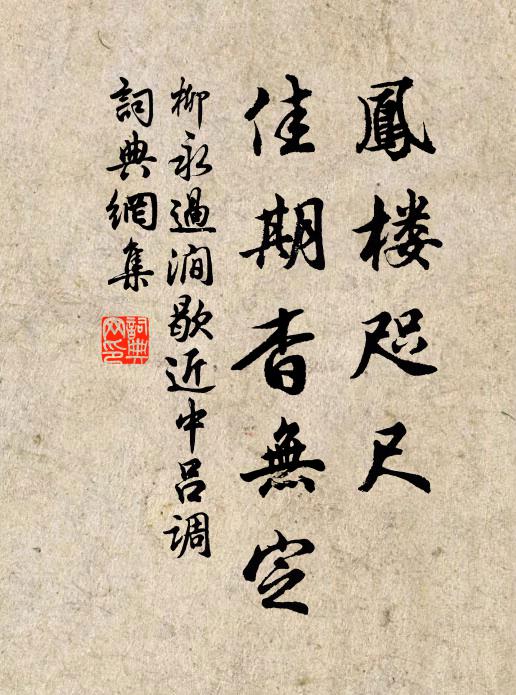 鳳楼咫尺
佳期杳無定
柳永過澗歇近中吕調
詞典網集
詞典網印